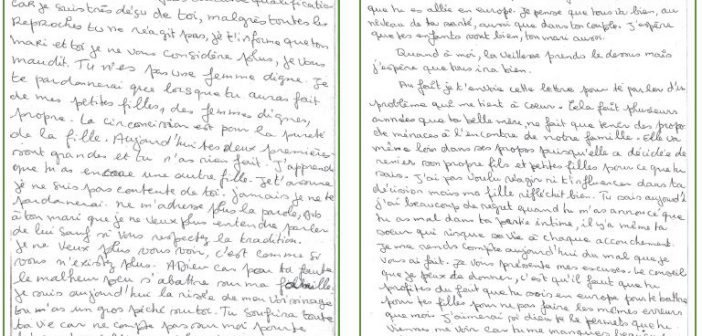 car je suis très déçu de toi, malgrès toutes les
Reproches tu ne réagit pas, je t'informe que ton
mari et toi je ne vous considère plus, je vous
maudit. Tu n'es pas une femme digne. Je
te pardonnerai que lorsque tu auras fait
de mes petites filles, des femmes dignes,
propre. La circoncision est pour la pureté
de la fille. Aujourd'hui tes deux premières
sont grandes et tu n'as rien fait. J'apprends
que tu as encore une autre fille. Je t'avoue
je ne suis pas contente de toi. jamais je ne te
pardonerai. ne m'adresse plus la parole, dis
à ton mari que je ne veux plus entendre parler
de lui sauf si vous respectez la tradition.
je ne veux plus vous voir, c'est comme si
vous n'existez plus. Adieu car par ta faute
le malheur peu s'abattre sur ma famille
je suis aujourd'hui la risée de mon voisinage
tu m'as un gros péché sur toi. Tu soufrira toute
ta vie car ne compte pas sur moi pour te
que tu es allée en europe. Je pense que tous va bien, au
niveau de ta santé, aussi que dans ton couple. J'espère
que tes enfants sont bien, ton mari aussi.
Quand à moi, la veillesse prends le dessus mais
j'espère que tous ira bien.
Au fait je t'envoie cette lettre pour te parler d'un
problème qui me tient à cœur. Cela fait plusieurs
années que ta belle mère, ne fait que tenir des propos
de menaces à l'encontre de notre famille. Elle va
même loin dans ses propos puisqu'elle a décidée de
renier son propre fils et petites filles pour ce que tu
sais. J'ai pas voulu réagir ni t'influencer dans ta
décision mais ma fille réfléchit bien. Tu sais aujourd'h
j'ai beaucoup de regret quand tu m'as annoncé que
tu as mal dans ta partie intime, il y'a même ta
sœur qui risque sa vie à chaque accouchement.
Je me rends compte aujourd'hui du mal que je
vous ai fait. Je vous présente mes excuses. Le conseil
que je peux te donner, c'est qu'il faut que tu
profites du fait que tu sois en europe pour te battre
pour tes filles pour ne pas faire les mêmes erreurs
que moi. J'aimerai si dieu te le permets que tu
viennes me voir car tu me manques